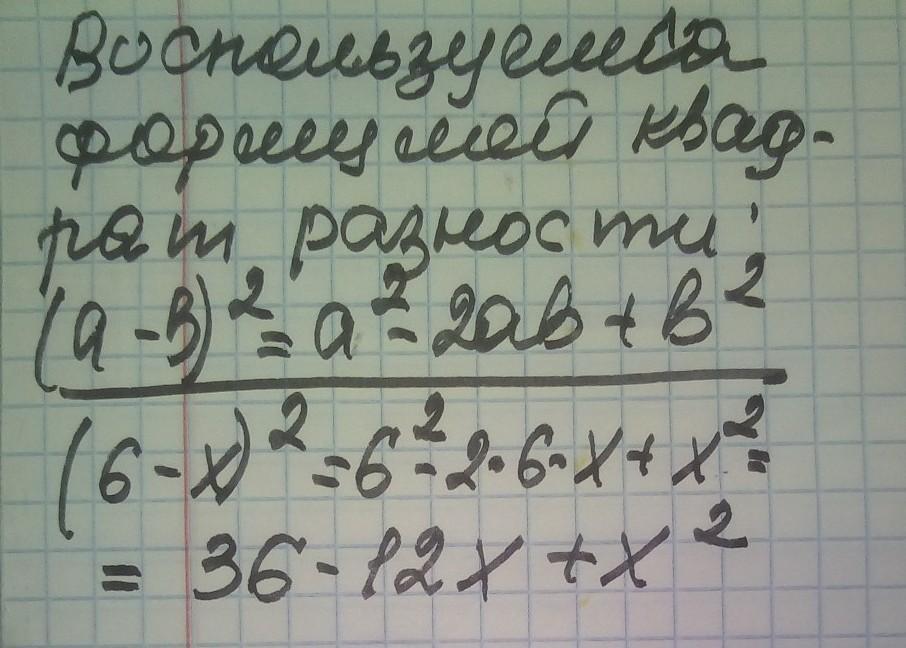 Воспользуемся
формулой квад-
рат разности:
(a - b)² = a² - 2ab + b²
(6 - x)² = 6² - 2·6·x + x² =
= 36 - 12x + x²